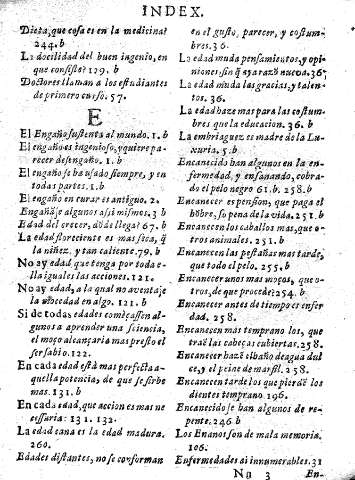 INDEX.
Dieta, que cosa es en la medicina?
244. b
La docilidad del buen ingenio, en
que consiste? 129. b
Doctores llaman a los estudiantes
de primero curso. 57.
E
El Engaño sustenta al mundo. 1. b
El engaño es ingenioso, y quiere pa-
recer desengaño. 1. b
El engaño se ha vsado siempre, y en
todas partes. 1. b
El engaño en curar es antiguo. 2.
Engañãse algunos a si mismos. 3 b
Edad del crecer, dõde llega? 67. b
La edad floreciente es mas seca, q̃
la niñez, y tan caliente. 79. b
No ay edad que tenga por toda e-
lla iguales las acciones. 121.
No ay edad, a la qual no auentaje
la mocedad en algo. 121. b
Si de todas edades començassen al-
gunos a aprender una sciencia,
el moço alcançaria mas presto el
ser sabio. 122.
En cada edad està mas perfecta a-
quella potencia, de que se sirbe
mas. 131. b
En cada edad, que accion es mas ne-
cessaria: 131. 132.
La edad cana es la edad madura.
260.
Edades distantes, no se conforman
en el gusto, parecer, y costum-
bres. 36.
La edad muda pensamientos, y opi-
niones sin q̃ aya razõ nueva. 36.
La edad muda las gracias, y talen-
tos. 36.
La edad haze mas para las costum-
bres que la educacion. 36. b
La embriaguez es madre de la Lu-
xuria. 5. b
Encanecido han algunos en la en-
fermedad, y en sanando, cobra-
do el pelo negro 61. b. 258. b
Encanecer es pension, que paga el
hõbre, so pena de la vida. 251. b
Encanecen los caballos mas, que o-
tros animales. 251.
Encanecen las pestañas mas tarde,
que todo el pelo. 255. b
Encanecer unos mas moços, que o-
tros, de que procede: 254. b
Encanecer antes de tiempo es enfer
dad. 258.
Encanecen mas temprano los, que
traẽ las cabeças cubiertas. 258.
Encanecer haze el baño de agua dul
ce, y el peine de marfil. 258.
Encanecen tarde los que pierdẽ los
dientes temprano. 196.
Encanecido se han algunos de re-
pente. 246 b
Los Enanos son de mala memoria.
106.
Enfermedades ai innumerables. 31
Nn 3
En-